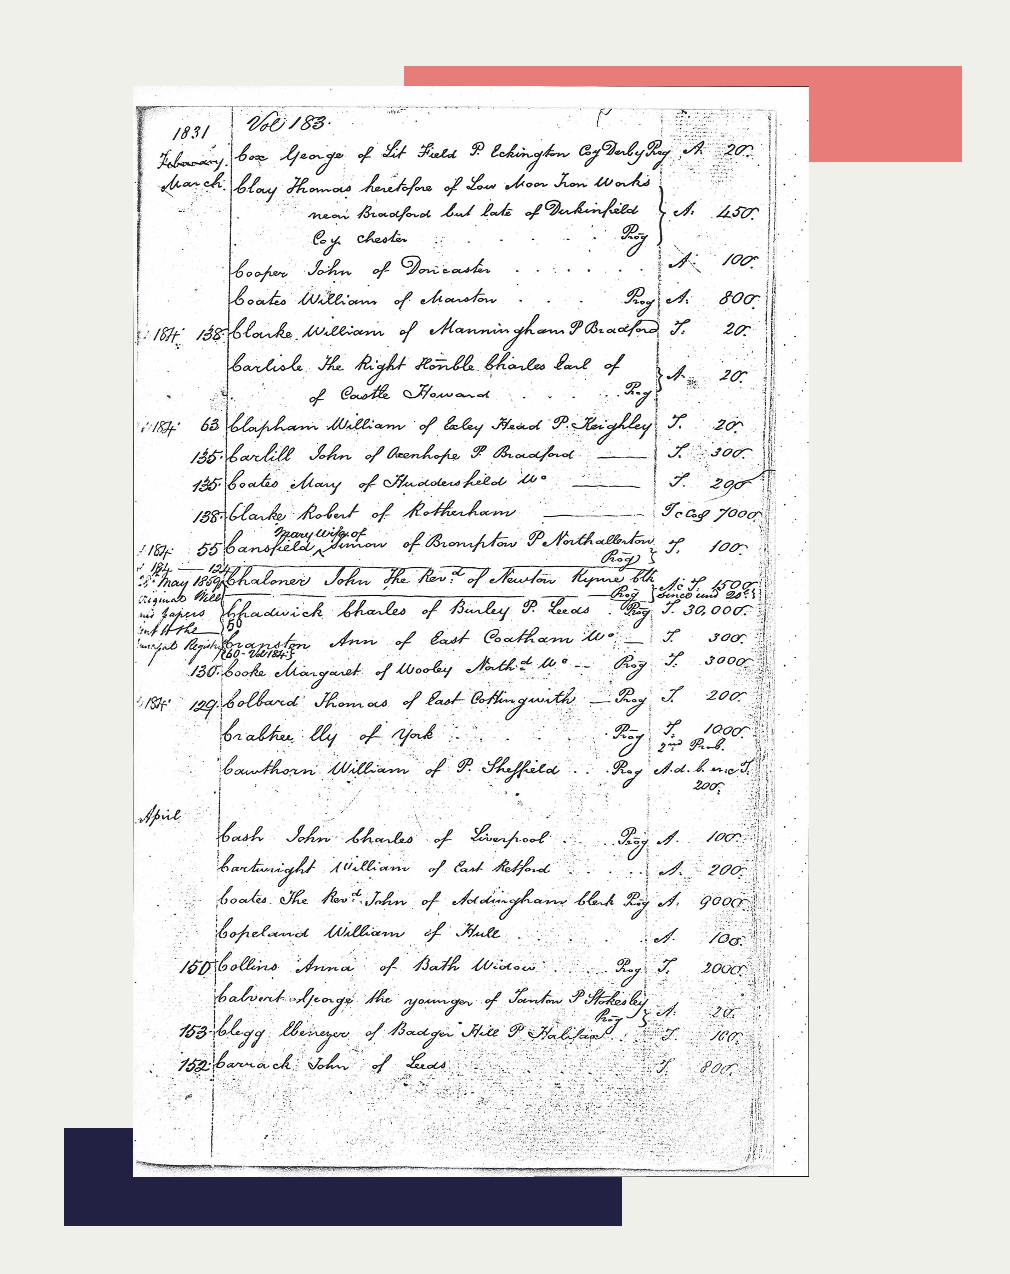 1831 Vol 183.
February. Cox George of Lit Field P. Eckington Coy Derby Prog A. 20.
March. Clay Thomas heretofore of Low Moor Iron Works
near Bradford but late of Dukinfield } A. 450.
Coy chester . . . . . Prog
Cooper John of Doncaster . . . . . . A. 100.
Coates William of Marston . . . Prog A. 800.
184 138 Clarke William of Manningham P Bradford T. 20.
Carlisle The Right Honble Charles Earl of
of Castle Howard . . . . Prog } A. 20.
184 63 Clapham William of Exley Head P. Keighley T. 20.
135 Carlill John of Oxenhope P. Bradford — T. 300.
135 Coates Mary of Huddersfield Wo — T. 200
138 Clarke Robert of Rotherham — T c Cod 7000
Mary Wife of
184 55 Cansfield ^ Simon of Brompton P Northallerton } T. 100.
Prog
184 — 124
May 1859 Chaloner John The Rev.d of Newton Kyme Clk } A c T. 1500
Original Will Prog since und 20.
Papers Chadwick Charles of Burley P. Leeds . Prog T. 30,000.
to the 50
Registry Cranston Ann of East Coatham Wo — T. 300.
60 - Vol 184
130. Cooke Margaret of Wooley North.d Wo -- Prog T. 3000
184 129. Colbard Thomas of East Cottingwith — Prog T. 200.
Crabtree Elly of York . . . . . Prog T. 1000.
2nd Prob.
Cawthorn William of P. Sheffield . . Prog A. d. b. T.
200.
April
Cash John Charles of Liverpool . . . Prog A. 100.
Cartwright William of East Retford . . . . . A. 200.
Coates The Rev.d John of Addingham clerk Prog A. 9000.
Copeland William of Hull . . . . . . A. 100.
150 Collins Anna of Bath Widow . . . Prog T. 2000.
Calvert George the younger of Tanton P Stokesley
Prog } A. 20.
153 Clegg Ebenezer of Badger Hill P. Halifax . . T. 100.
152 Carrack John of Leeds . . . . T. 800.